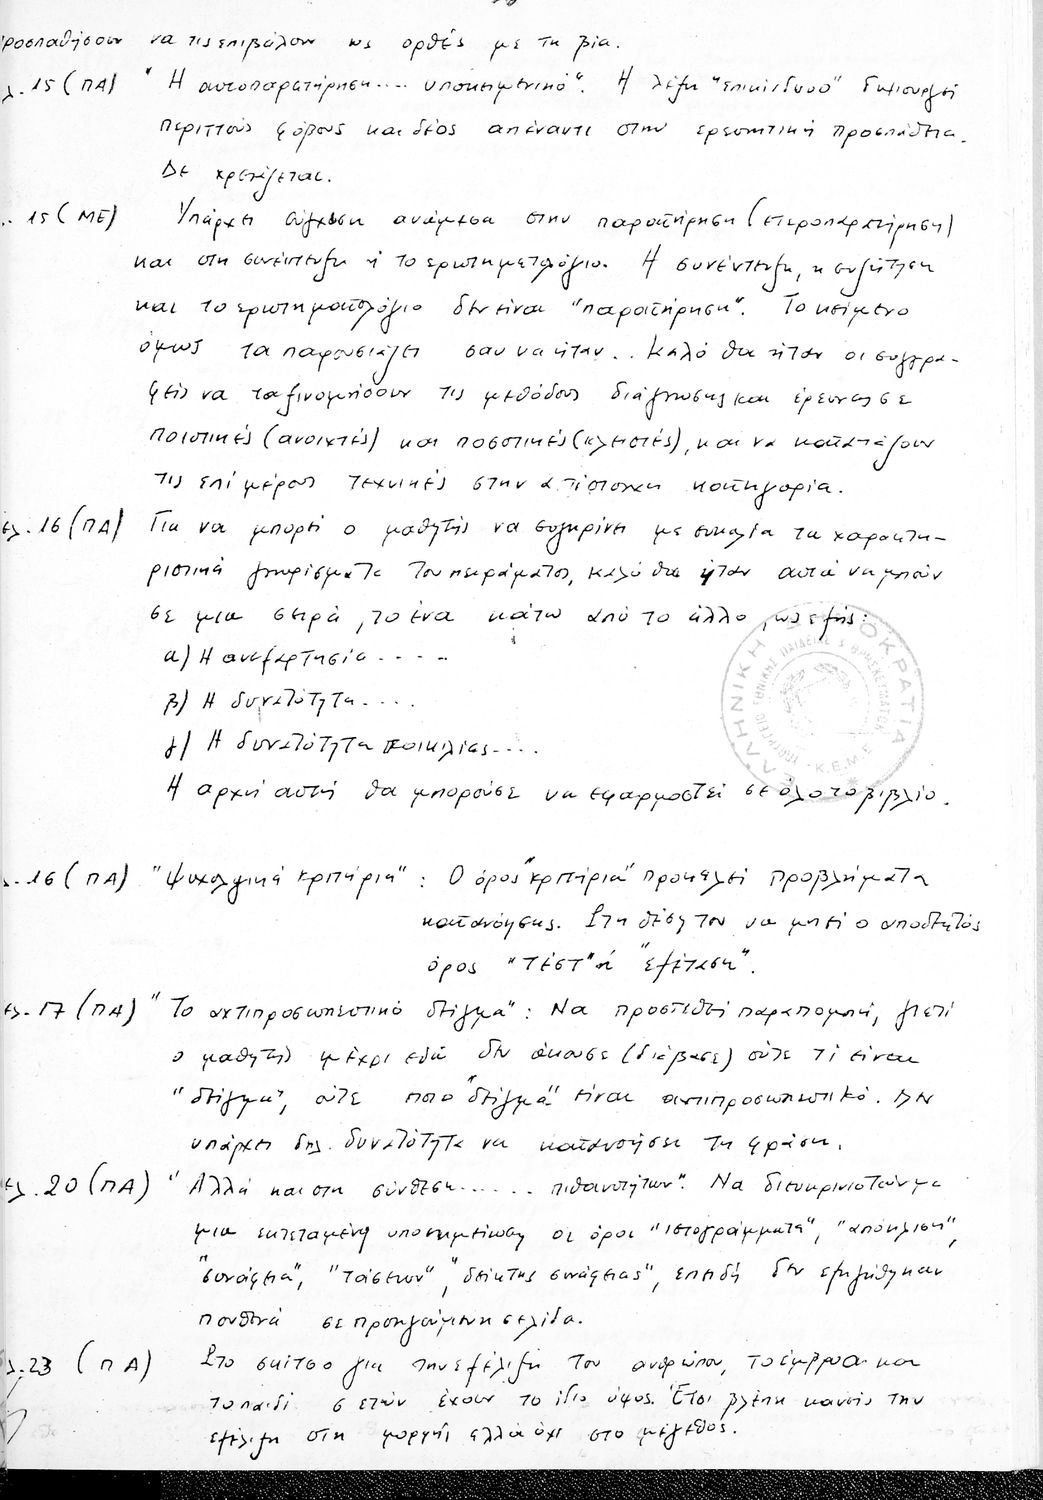 προσπαθήσουν να τις επιβάλουν ως ορθές με τη βία.
λ. 15 (ΠΑ) "Η αυτοπαρατήρηση.... υποκειμενικό". Η λέξη "επικίνδυνο" δημιουργεί
περιττούς φόβους και δέος απέναντι στην ερευνητική προσπάθεια.
Δε χρειάζεται.
. 15 (ΜΕ) Υπάρχει σύγχυση ανάμεσα στην παρατήρηση (ετεροπαρατήρηση)
και στη συνέντευξη ή το ερωτηματολόγιο. Η συνέντευξη, η συζήτηση
και το ερωτηματολόγιο δεν είναι "παρατήρηση". Το κείμενο
όμως τα παρουσιάζει σαν να ήταν.. Καλό θα ήταν οι συγγρα-
φείς να ταξινομήσουν τις μεθόδους διάγνωσης και έρευνας σε
ποιοτικές (ανοιχτές) και ποσοτικές (κλειστές), και να κατατάξουν
τις επί μέρους τεχνικές στην αντίστοιχη κατηγορία.
ελ. 16 (ΠΑ) Για να μπορεί ο μαθητής να συγκρίνει με ευκολία τα χαρακτη-
ριστικά γνωρίσματα του πειράματος, καλό θα ήταν αυτά να μπούν
σε μια σειρά, το ένα κάτω από το άλλο, ως εξής:
α) Η ανεξαρτησία.....
β) Η δυνατότητα....
γ) Η δυνατότητα ποικιλίας....
Η αρχή αυτή θα μπορούσε να εφαρμοστεί σε όλο το βιβλίο.
ΕΛΛΗΝΙΚΗ ΔΗΜΟΚΡΑΤΙΑ
ΥΠΟΥΡΓΕΙΟ ΕΘΝΙΚΗΣ ΠΑΙΔΕΙΑΣ & ΘΡΗΣΚΕΥΜΑΤΩΝ
Κ.Ε.Μ.Ε.
λ. 16 (ΠΑ) "Ψυχολογικά κριτήρια" : Ο όρος "κριτήρια" προκαλεί προβλήματα
κατανόησης. Στη θέση του να μπεί ο αποδεκτός
όρος "τέστ" ή "εξέταση".
ελ. 17 (ΠΑ) "Το αντιπροσωπευτικό δείγμα" : Να προστεθεί παραπομπή, γιατί
ο μαθητής μέχρι εδώ δεν άκουσε (διάβασε) ούτε τί είναι
"δείγμα", ούτε ποιο "δείγμα" είναι αντιπροσωπευτικό. Δεν
υπάρχει δηλ. δυνατότητα να κατανοήσει τη φράση.
ελ. 20 (ΠΑ) "Αλλά και στη σύνθεση...... πιθανοτήτων". Να διευκρινιστούν με
μια εκτεταμένη υποσημείωση οι όροι "ιστογράμματα", "απόκλιση",
"συνάφεια", "τάσεων", "δείκτης συνάφειας", επειδή δεν εξηγήθηκαν
πουθενά σε προηγούμενη σελίδα.
λ. 23 (ΠΑ) Στο σκίτσο για την εξέλιξη του ανθρώπου, το έμβρυο και
το παιδί 6 ετών έχουν το ίδιο ύψος. Έτσι βλέπει κανείς την
εξέλιξη στη μορφή αλλά όχι στο μέγεθος.